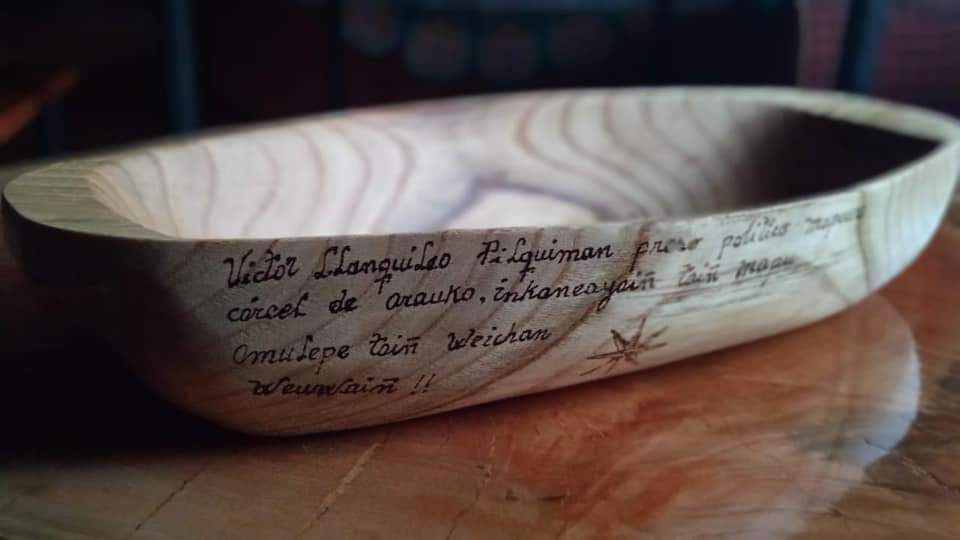 Victor Llanquileo Pilquiman preso politico mapuche
cárcel de arauko, inkaneayaiñ taiñ mapu
Amulepe taiñ Weichan
Weuwaiñ !!